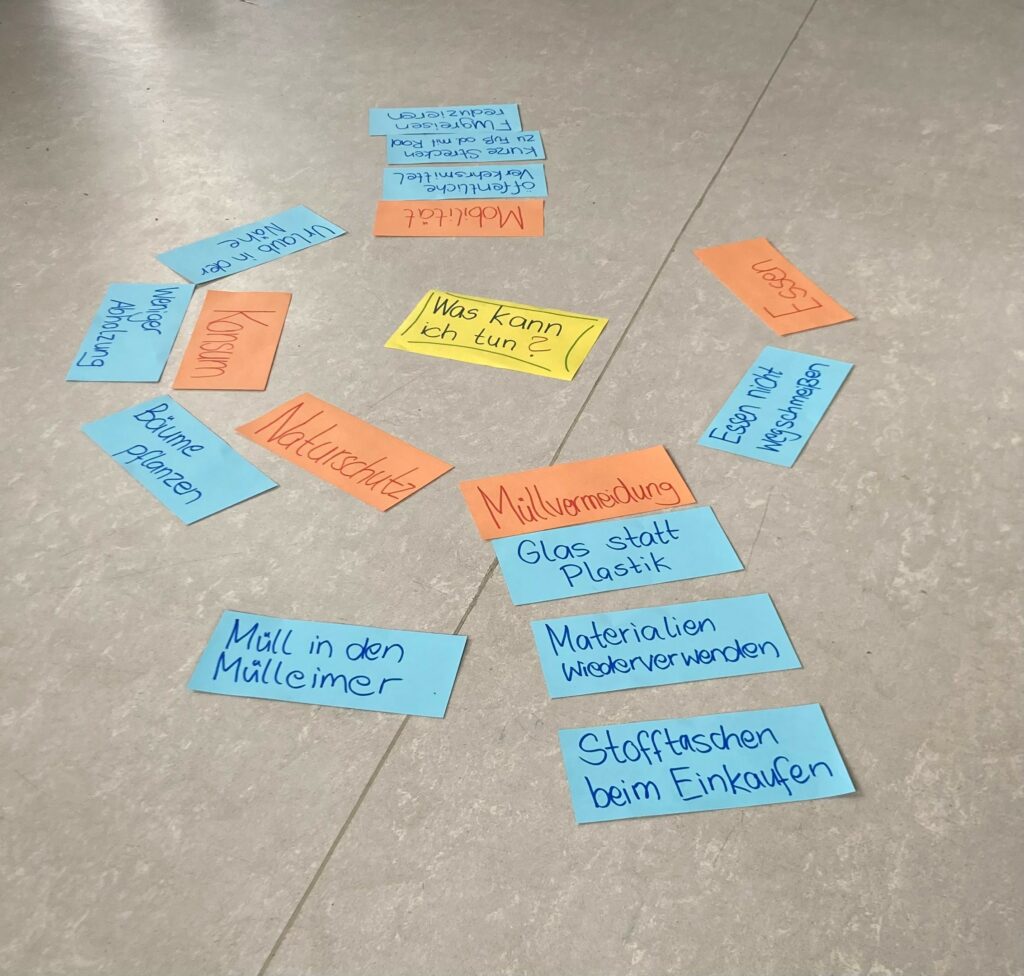 Was kann
ich tun?
Mobilität
öffentliche
Verkehrsmittel
Kurze Strecken
zu Fuß od mit Rad
Flugreisen
reduzieren
Essen
Essen nicht
wegschmeißen
Müllvermeidung
Glas statt
Plastik
Materialien
wiederverwenden
Stofftaschen
beim Einkaufen
Müll in den
Mülleimer
Naturschutz
Bäume
pflanzen
Konsum
Weniger
Abholzung
Urlaub in der
Nähe